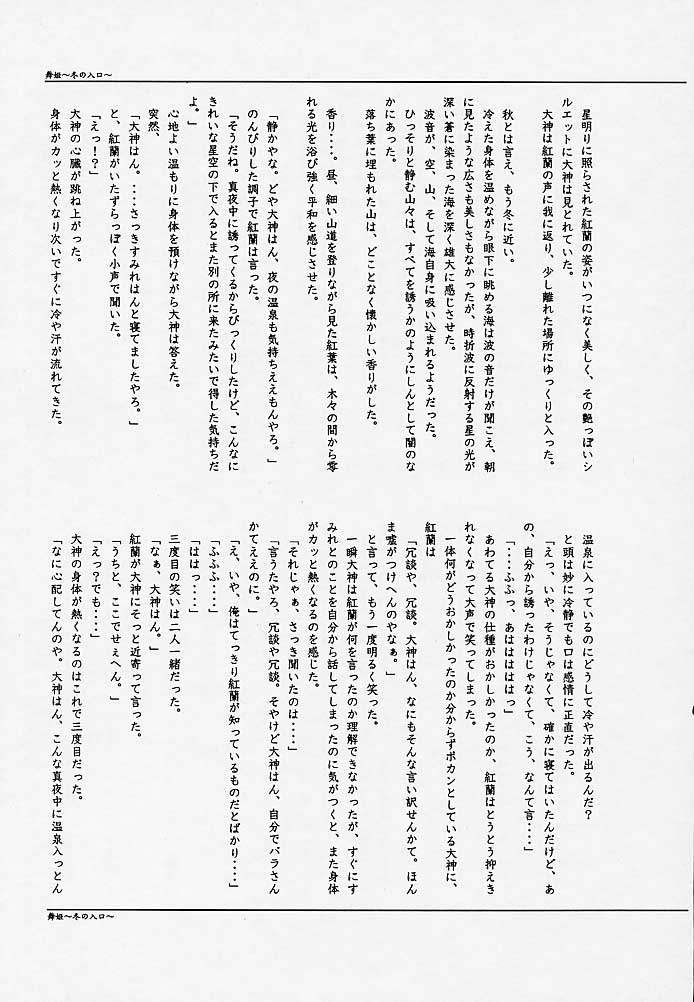 舞姫～冬の入口～
星明りに照らされた紅蘭の姿がいつになく美しく、その艶っぽいシ
ルエットに大神は見とれていた。
大神は紅蘭の声に我に返り、少し離れた場所にゆっくりと入った。
秋とは言え、もう冬に近い。
冷えた身体を温めながら眼下に眺める海は波の音だけが聞こえ、朝
に見たような広さも美しさもなかったが、時折波に反射する星の光が
深い蒼に染まった海を深く雄大に感じさせた。
波音が、空、山、そして海自身に吸い込まれるようだった。
ひっそりと静む山々は、すべてを誘うかのようにしんとして闇のな
かにあった。
落ち葉に埋もれた山は、どことなく懐かしい香りがした。
香り・・・。昼、細い山道を登りながら見た紅葉は、木々の間から零
れる光を浴び強く平和を感じさせた。
「静かやな。どや大神はん、夜の温泉も気持ちええもんやろ。」
のんびりした調子で紅蘭は言った。
「そうだね。真夜中に誘ってくるからびっくりしたけど、こんなに
きれいな星空の下で入るとまた別の所に来たみたいで得した気持ちだ
よ。」
心地よい温もりに身体を預けながら大神は答えた。
突然、
「大神はん。・・・さっきすみれはんと寝てましたやろ。」
と、紅蘭がいたずらっぽく小声で聞いた。
「えっ！？」
大神の心臓が跳ね上がった。
身体がカッと熱くなり次いですぐに冷や汗が流れてきた。
温泉に入っているのにどうして冷や汗が出るんだ？
と頭は妙に冷静でも口は感情に正直だった。
「えっ、いや、そうじゃなくて、確かに寝てはいたんだけど、あ
の、自分から誘ったわけじゃなくて、こう、なんて言・・・・」
「・・・ふふっ、あははははっ」
あわてる大神の仕種がおかしかったのか、紅蘭はとうとう抑えき
れなくなって大声で笑ってしまった。
一体何がどうおかしかったのか分からずポカンとしている大神に、
紅蘭は
「冗談や、冗談。大神はん、なにもそんな言い訳せんかて。ほん
ま嘘がつけへんのやなぁ。」
と言って、もう一度明るく笑った。
一瞬大神は紅蘭が何を言ったのか理解できなかったが、すぐにす
みれとのことを自分から話してしまったのに気がつくと、また身体
がカッと熱くなるのを感じた。
「それじゃぁ、さっき聞いたのは・・・・」
「言うたやろ、冗談や冗談。そやけど大神はん、自分でバラさん
かてええのに。」
「え、いや、俺はてっきり紅蘭が知っているものだとばかり・・・・」
「ふふふ・・・」
「ははっ・・・」
三度目の笑いは二人一緒だった。
「なぁ、大神はん。」
紅蘭が大神にそっと近寄って言った。
「うちと、ここでせぇへん。」
「えっ？でも・・・」
大神の身体が熱くなるのはこれで三度目だった。
「なに心配してんのや。大神はん、こんな真夜中に温泉入っとん
舞姫～冬の入口～